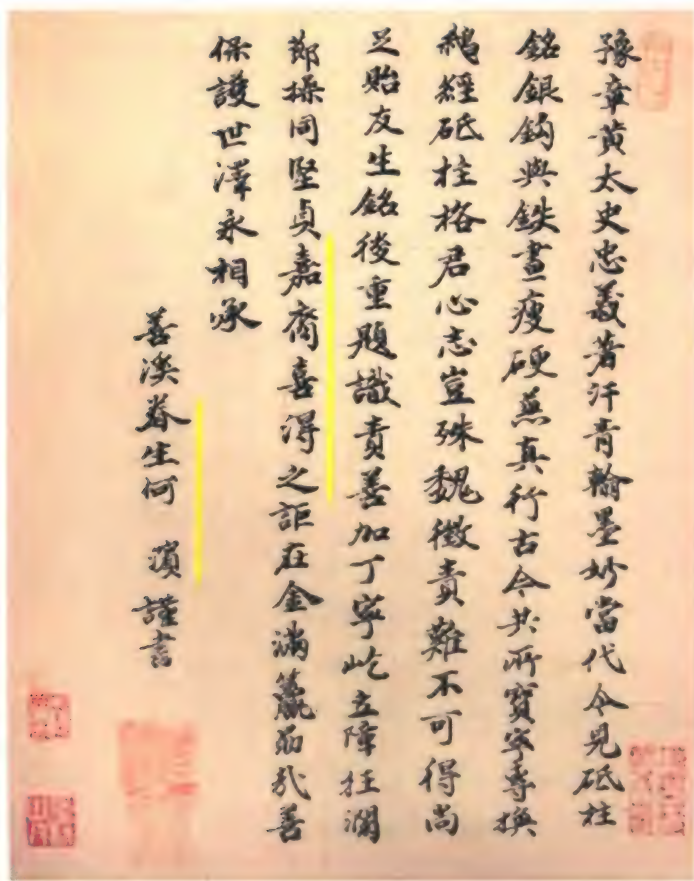 豫章黃太史忠義著汗青翰墨妙當代今見砥柱
銘銀鈎與鉄畫瘦硬兼真行古今共所寶寧專換
鵝經砥柱格君心志豈殊魏徵責難不可得尚
足貽友生銘後重題識責善加丁寧屹立障狂瀾
節操同堅貞嘉裔喜得之詎在金滿籯勗哉善
保護世澤永相承
善溪眷生何㵋謹書